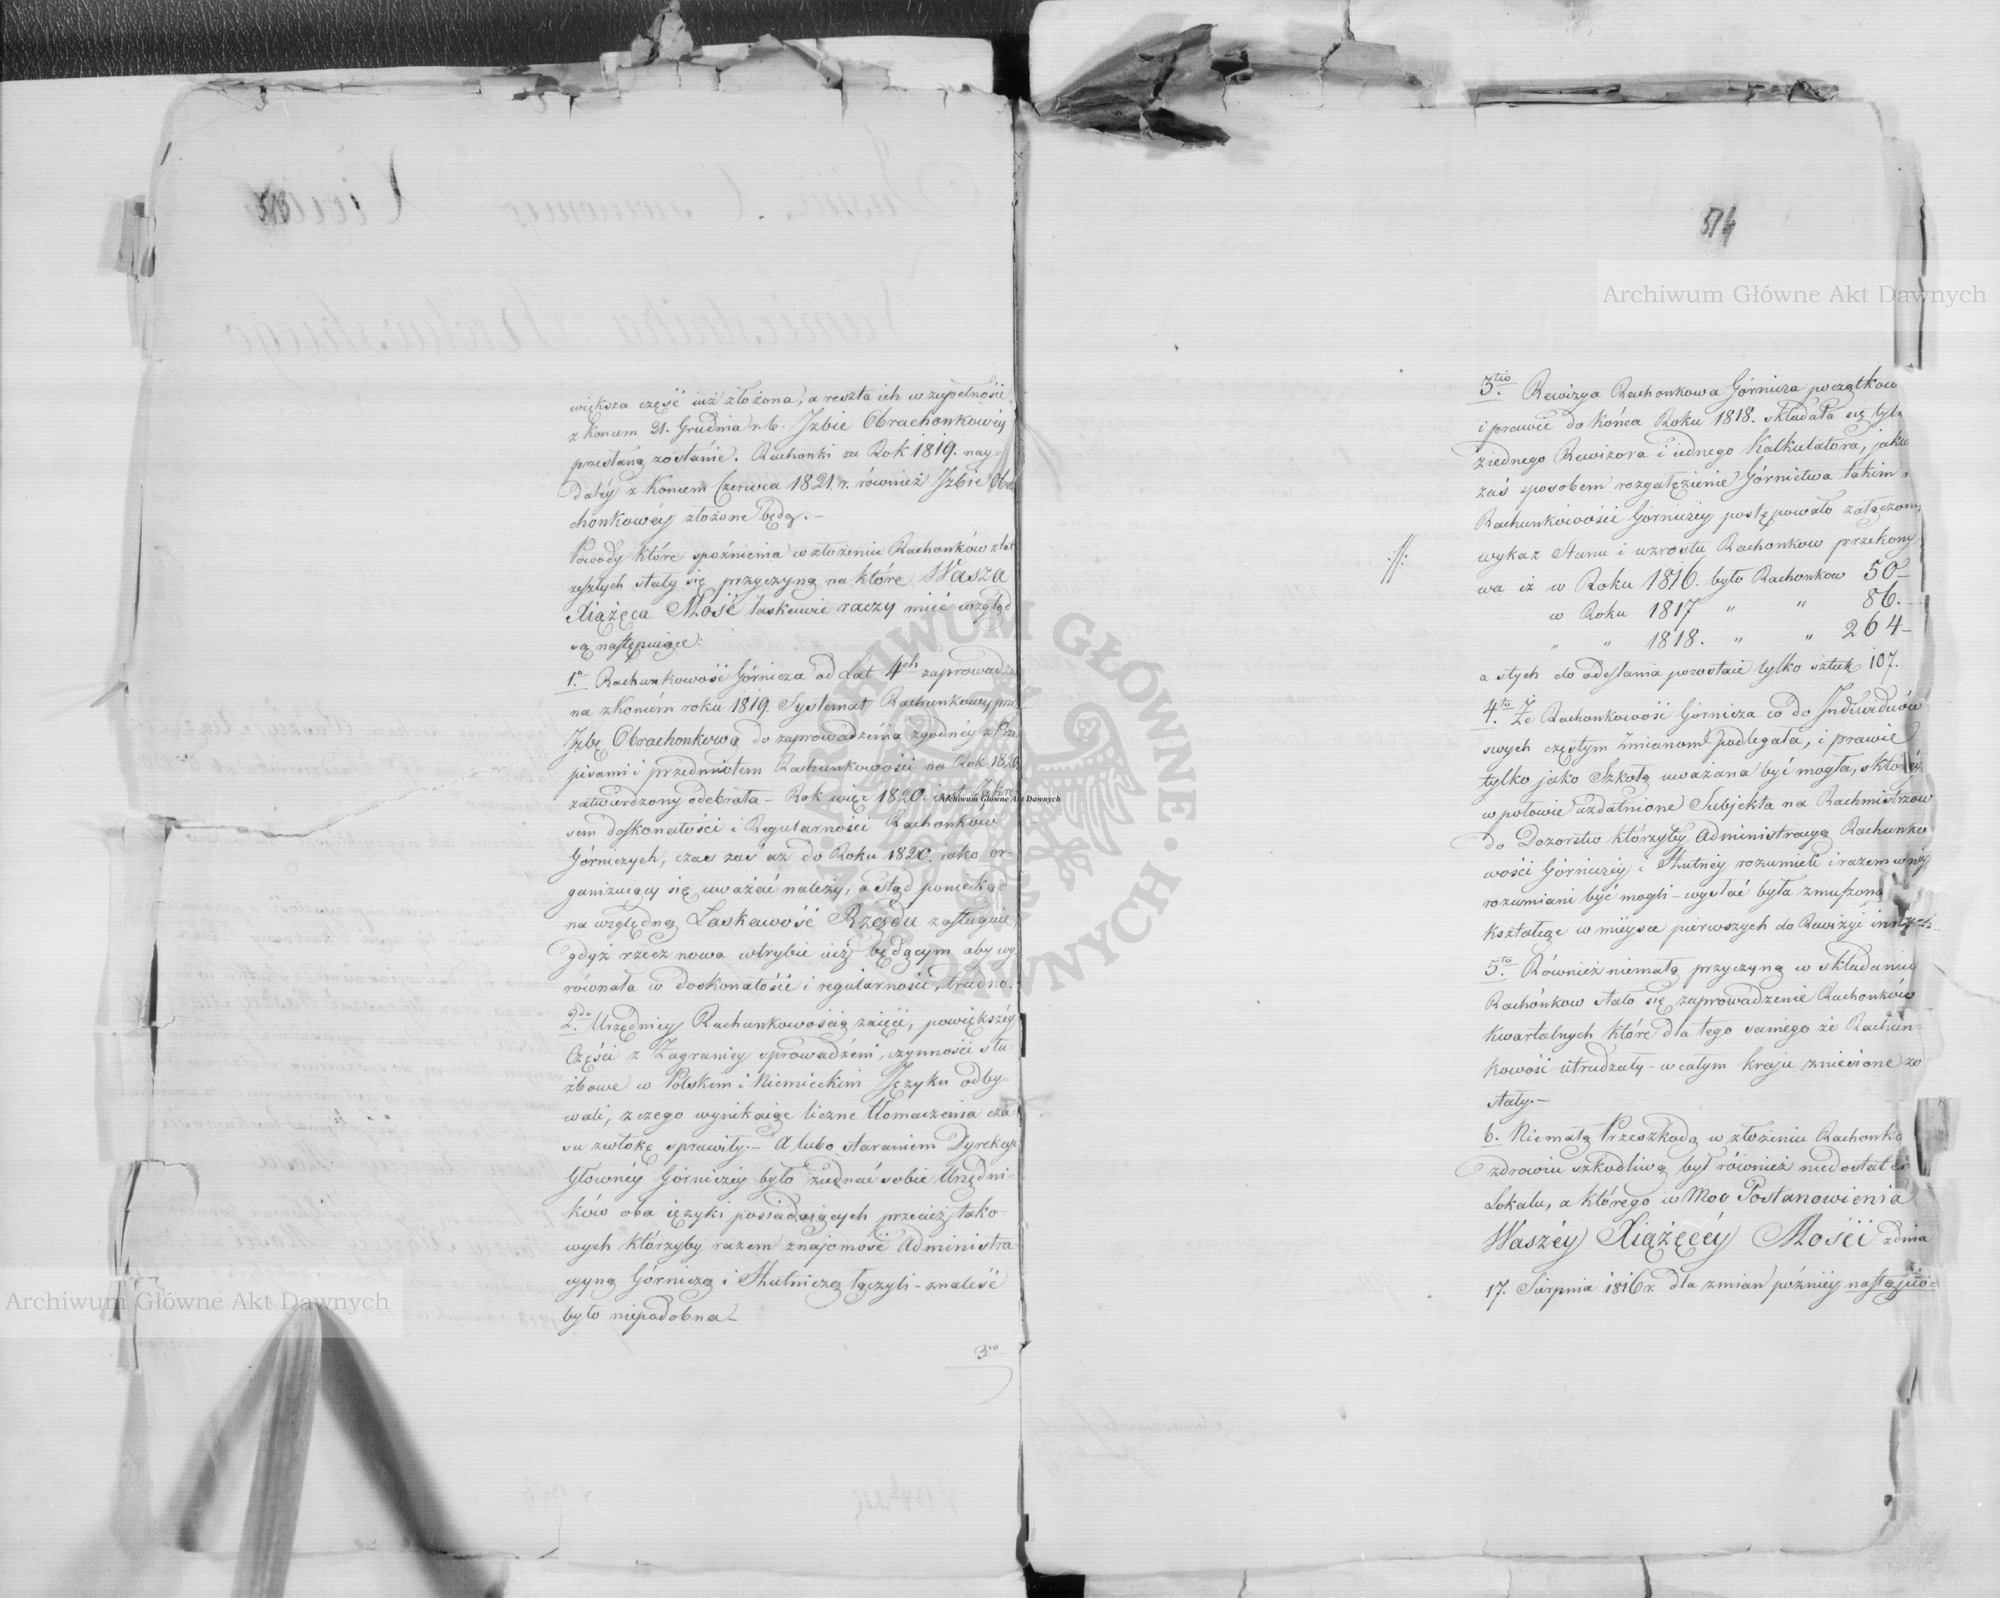 513
większa część iuż złożona, a reszta ich w zupełności
z końcem 31. Grudnia r. b. Jzbie Obrachonkowéy
przesłaną zostanie. Rachonki za Rok 1819. nay-
daléy z Końcem Czerwca 1821. r. również Jzbie Obra
chonkowéy złożone będą.-
Powody które spoźnienia w złożeniu Rachonków z lat
zeszłych stały się przyczyną na które Wasza
Xiążęca Mość łaskawie raczy mieć wzgląd
są następuiące:
1o. Rachunkowość Górnicza od Lat 4ch zaprowadzo
na z końcem roku 1819. Systemat Rachunkowy prze
Jzbę Obrachonkową do zaprowadzenia zgodnéy z Prze
pisami i przedmiotem Rachunkowości na Rok 1820
zatwierdzony odebrała - Rok więc 1820. iest
sem doskonałości i Regularności Rachonków
Górniczych, czas zaś aż do Roku 1820. iako or-
ganizuiący się uważać należy, a stąd poniekąd
na względną Łaskawość Rządu zasługuie
gdyż rzecz nowa w trybie iuż będącym aby wy-
równała w doskonałość i regularności, trudno.
2do. Urzędnicy Rachunkowością zaięci, powiększéy
Części z Zagranicy sprowadzeni, czynności słu-
żbowe w Polskim i Niemieckim Języku odby-
wali, z czego wynikaiące liczne tłomaczenia cza-
su zwłokę sprawiły.- A lubo staraniem Dyrekcyi
Głownéy Górniczéy było ziednać sobie Urzędni-
ków oba ięzyki posiadaiących przecież tako-
wych którzyby razem znajomość Administra
cyyną Górniczą i Hutniczą łączyli - znaleść
było niepodobna.-
3tio
514
3tio. Rewizya Rachonkowa Górnicza początkow
i prawie do Końca Roku 1818. składała się tylk
z iednego Rewizora i iednego Kalkulatora, jakie
zaś sposobem rozgałęzienie Górnictwa takim i
Rachunkowości Górniczéy postępowało załączony
:/: wykaz Stanu i wzrostu Rachonkow przekony
wa iż w Roku 1816. było Rachonkow 50-
w Roku 1817 " " 86.-
" " 1818. " " 264-
a z tych do odesłania pozostaie tylko sztuk 107.
4to. Że Rachonkowość Górnicza co do Jndiwiduów
swych częstym zmianom podlegała, i prawie
tylko jako Szkołą uważana być mogła, z któréy
w połowie uzdatnione Subjekta na Rachmistrzow
do Dozorstw którzyby Administracyą Rachunko
wości Górniczéy i Hutnéy rozumieli i razem w niéy
rozumiani być mogli - wysłać była zmuszona
kształcąc w mieysce pierwszych do Rewizyi innych
5to. Również niemałą przyczyną w składaniu
Rachónkow stało się zaprowadzenie Rachonków
kwartalnych które dla tego samego że Rachun-
kowość utrudzały - w całym kraju zniesione zo
stały.-
6. Niemałą Przeszkodą w złożeniu Rachonkó
zdrowiu szkodliwą był również niedostatek
Lokalu, a którego w Moc Postanowienia
Waszéy Xiążęcéy Mości z dnia
17. Sierpnia 1816 r. dla zmian późniéy nastąpio-
Archiwum Główne Akt Dawnych
Archiwum Główne Akt Dawnych
Archiwum Główne Akt Dawnych
ARCHIWUM GŁÓWNE AKT DAWNYCH